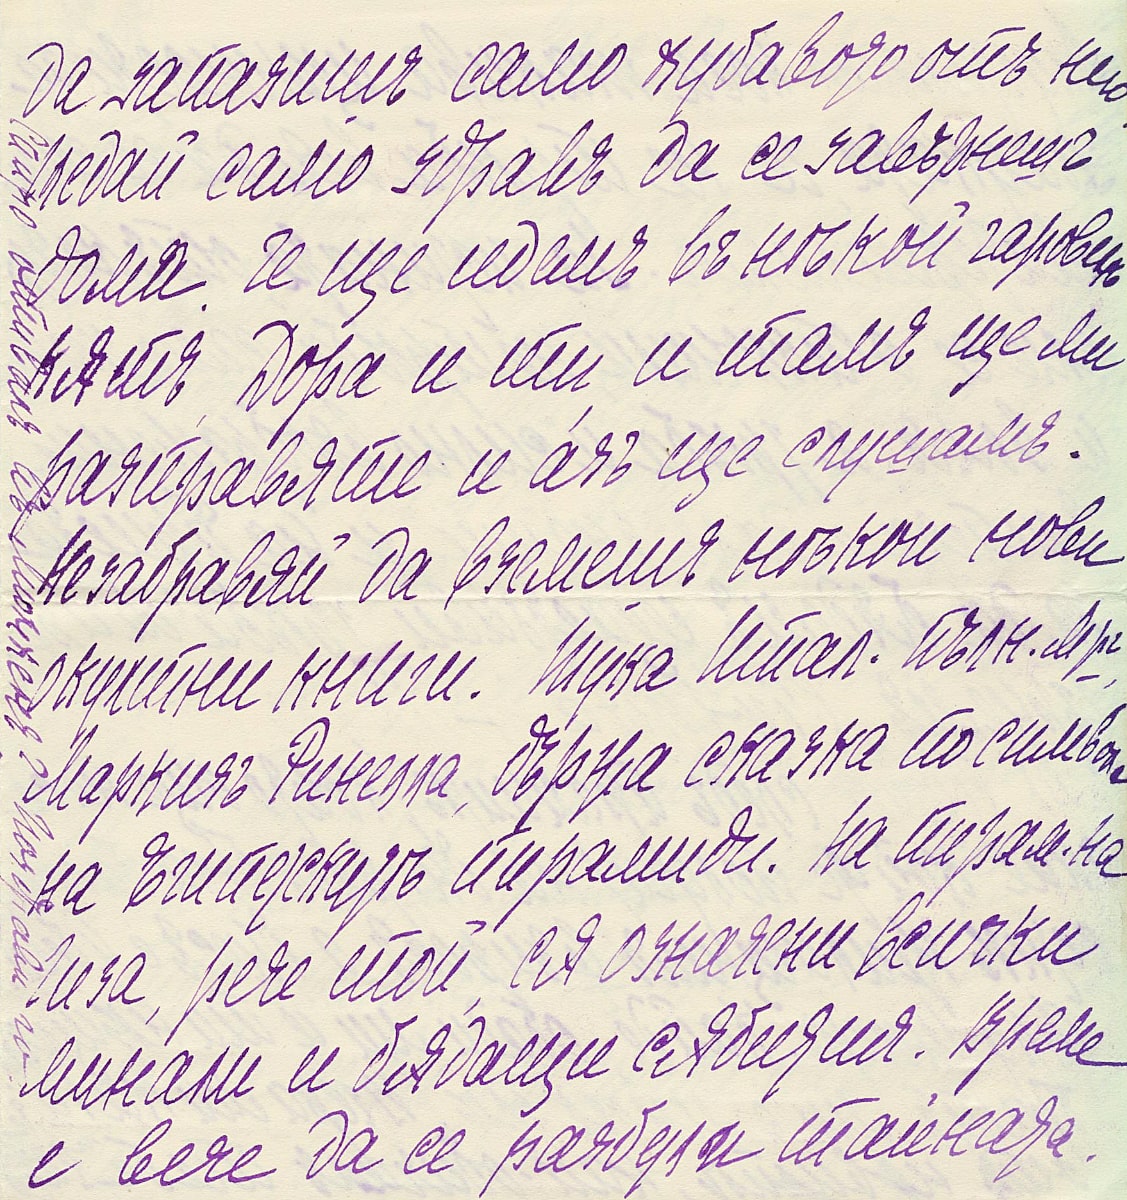 да запазишъ само хубавото отъ нио
гледай само здравъ да се завърнешъ
дома. че ще идемъ въ нѣкой гаровскъ
кѫтъ, Дора и ти и тамъ ще ми
разправяте и азъ ще слушамъ.
Не забравяй да вземешъ нѣкои нови
окултни книги. Тука Итал. пълн. м-ръ,
Маркизъ Ринелла, държа сказка по символ.
на Египетскитѣ пирамиди. На пирам. на
Гиза, рече той, сѫ означени всички
минали и бѫдащи сѫбития. Време
е вече да се разбули тайната.
Спиро отивамъ въ Мюнхенъ? Поздрави го